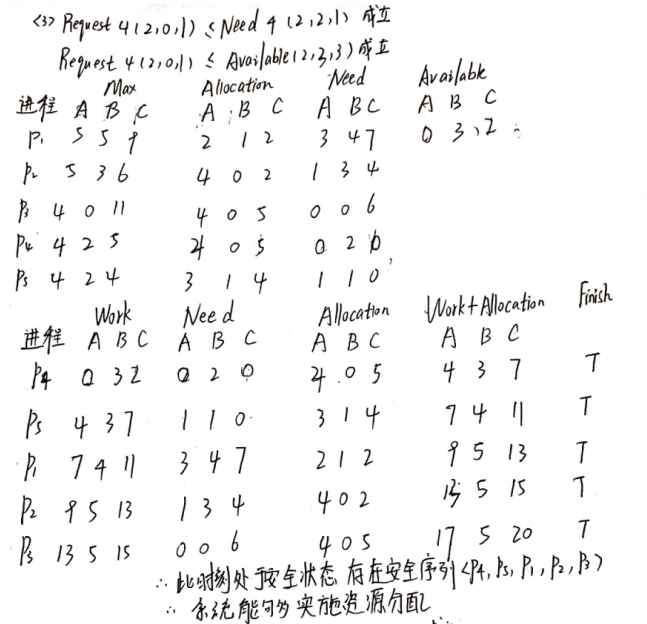 <3> Request 4(2,0,1) ≤ Need 4 (2,2,1) 成立
Request 4(2,0,1) ≤ Available(2,3,3)成立
Max Allocation Need Available
进程 A B C A B C A B C A B C
P1 5 5 9 2 1 2 3 4 7 0 3 2
P2 5 3 6 4 0 2 1 3 4
P3 4 0 11 4 0 5 0 0 6
P4 4 2 5 4 0 5 0 2 0
P5 4 2 4 3 1 4 1 1 0
Work Need Allocation Work+Allocation Finish
进程 A B C A B C A B C A B C
P4 0 3 2 0 2 0 4 0 5 4 3 7 T
P5 4 3 7 1 1 0 3 1 4 7 4 11 T
P1 7 4 11 3 4 7 2 1 2 9 5 13 T
P2 9 5 13 1 3 4 4 0 2 13 5 15 T
P3 13 5 15 0 0 6 4 0 5 17 5 20 T
∴ 此时刻处于安全状态 存在安全序列<P4, P5, P1, P2, P3>
∴ 系统能够实施资源分配